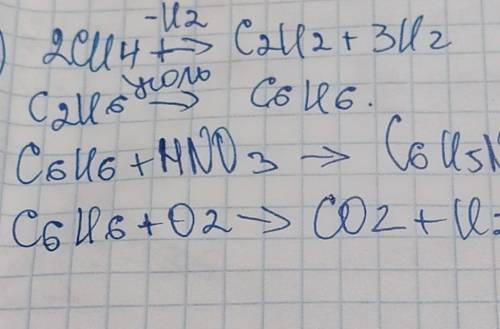 ) 2CH4 -H2→ C2H2 + 3H2
C2H6 уголь→ C6H6.
C6H6 + HNO3 → C6H5N
C6H6 + O2 → CO2 + H2